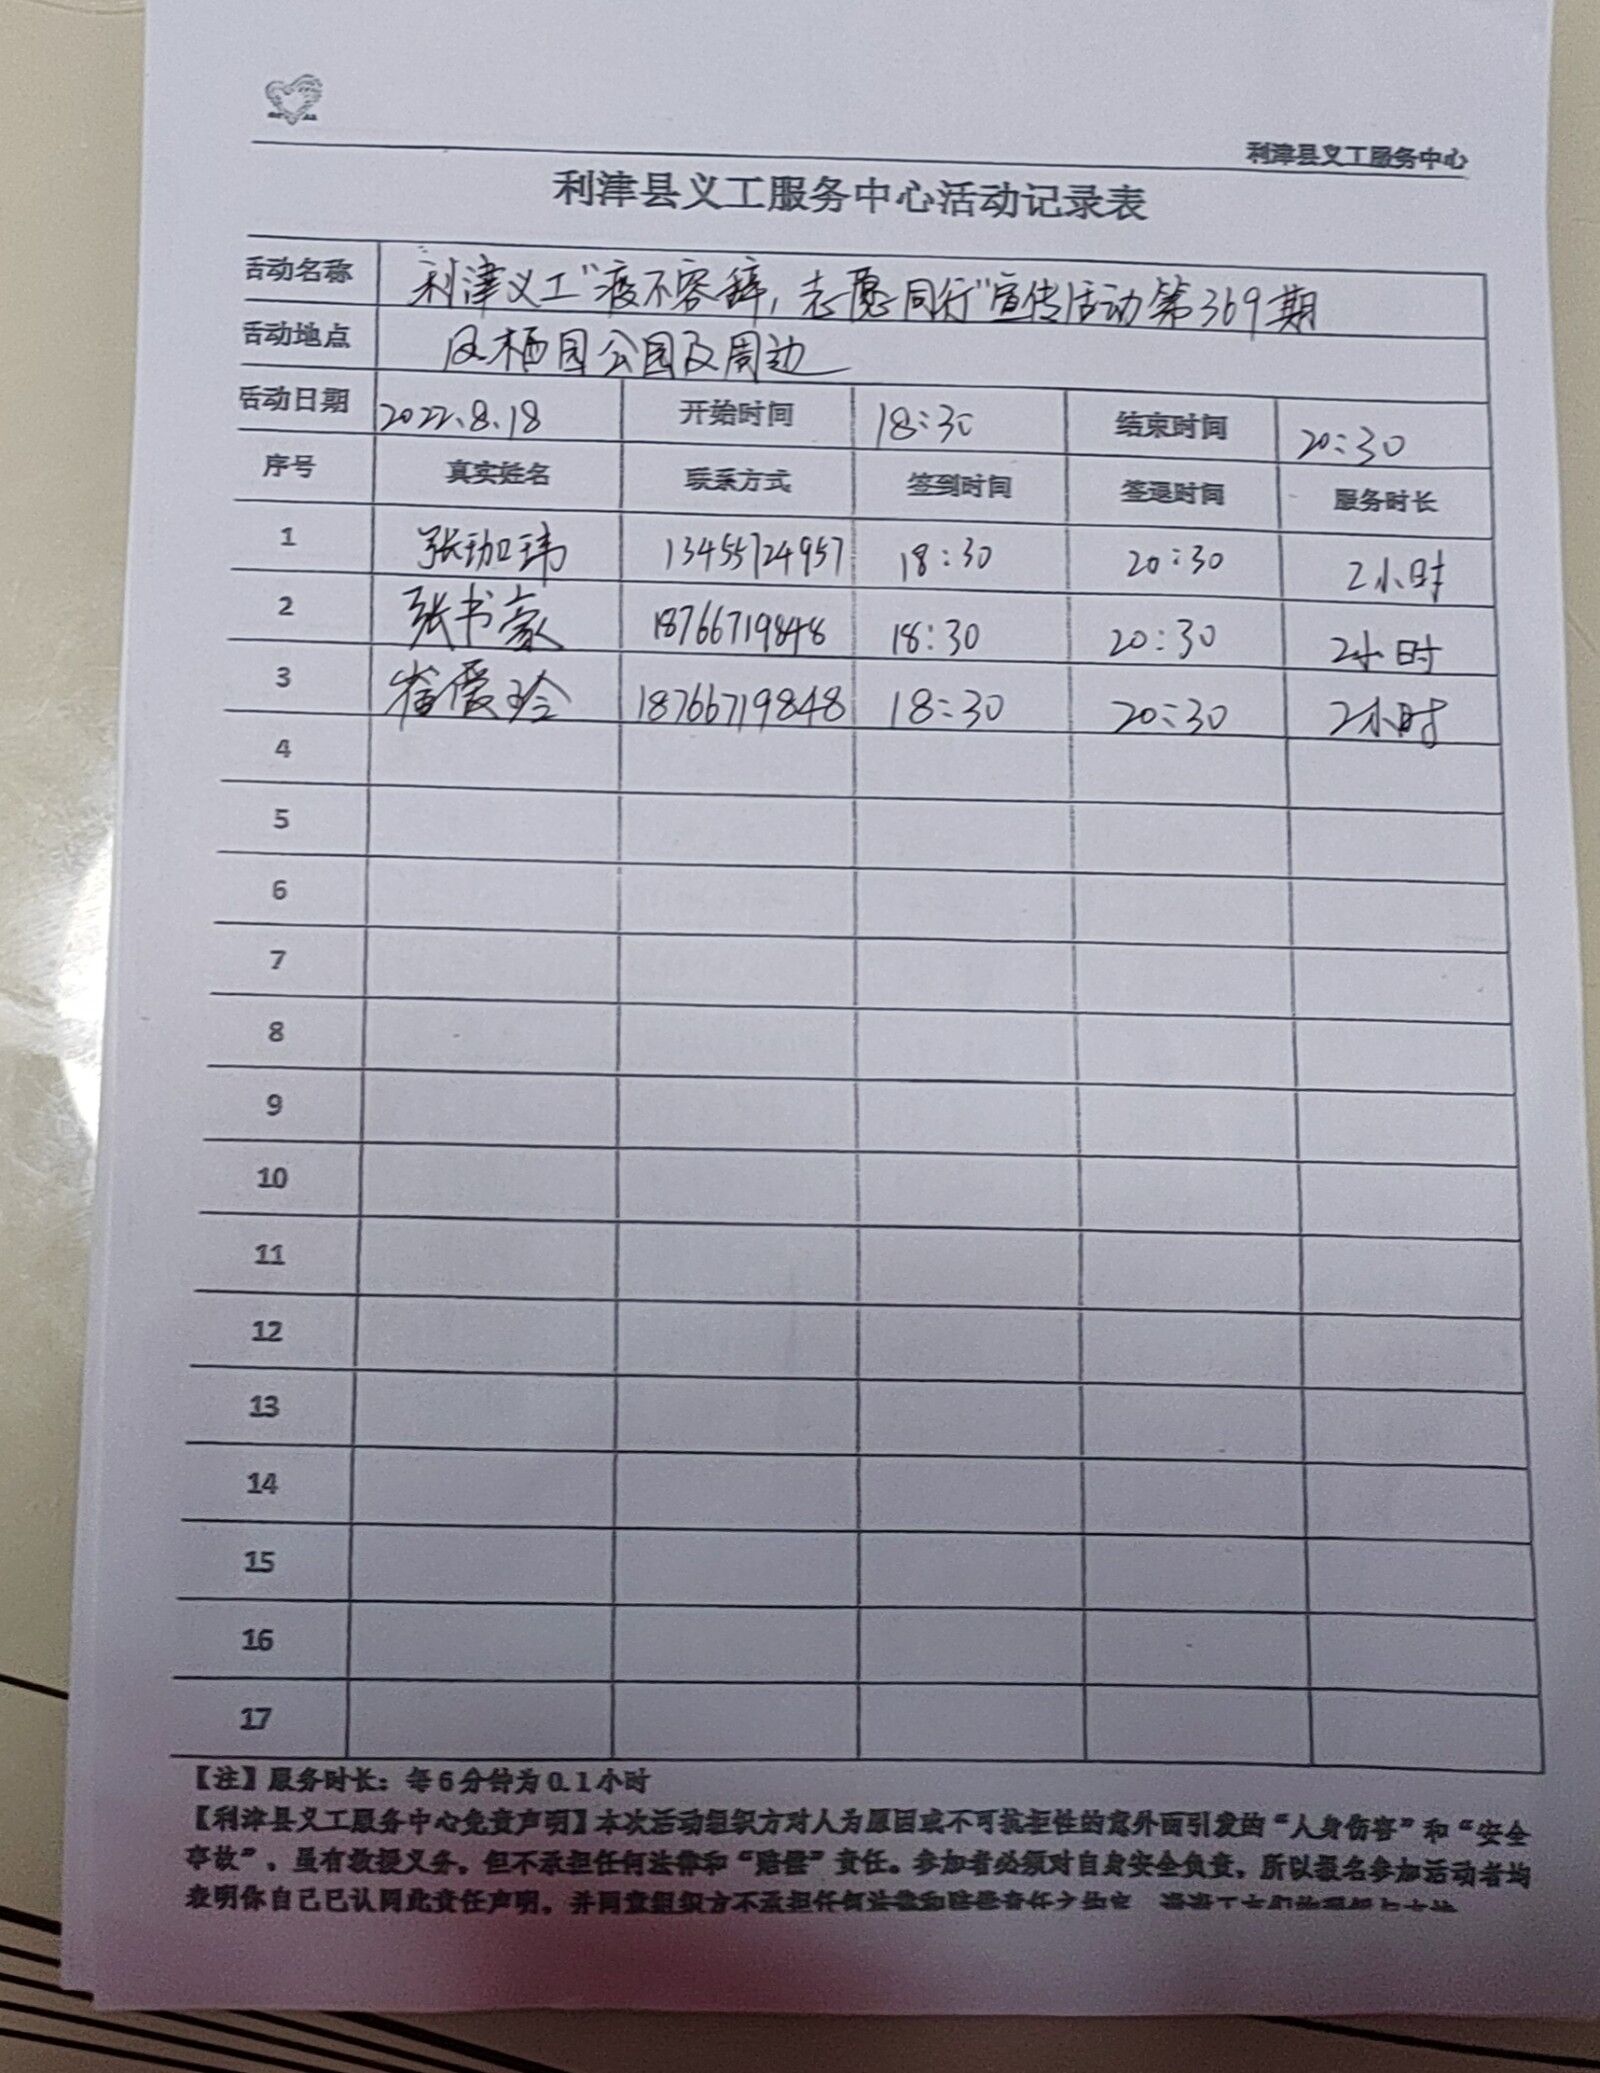 利津县义工服务中心
利津县义工服务中心活动记录表
活动名称 利津义工"疫不容辞,志愿同行"宣传活动第369期
活动地点 凤栖园公园及周边
活动日期 2022.8.18 开始时间 18:30 结束时间 20:30
序号 真实姓名 联系方式 签到时间 签退时间 服务时长
1 张珈玮 13455724957 18:30 20:30 2小时
2 张书豪 18766719848 18:30 20:30 2小时
3 崔爱玲 18766719848 18:30 20:30 2小时
4
5
6
7
8
9
10
11
12
13
14
15
16
17
【注】服务时长:每6分钟为0.1小时
【利津县义工服务中心免责声明】本次活动组织方对人为原因或不可抗拒性的意外而引发的“人身伤害”和“安全
事故”,虽有救援义务,但不承担任何法律和“赔偿”责任。参加者必须对自身安全负责,所以报名参加活动者均
表明你自己已认同此责任声明,并同意组织方不承担任何法律和赔偿责任之约定